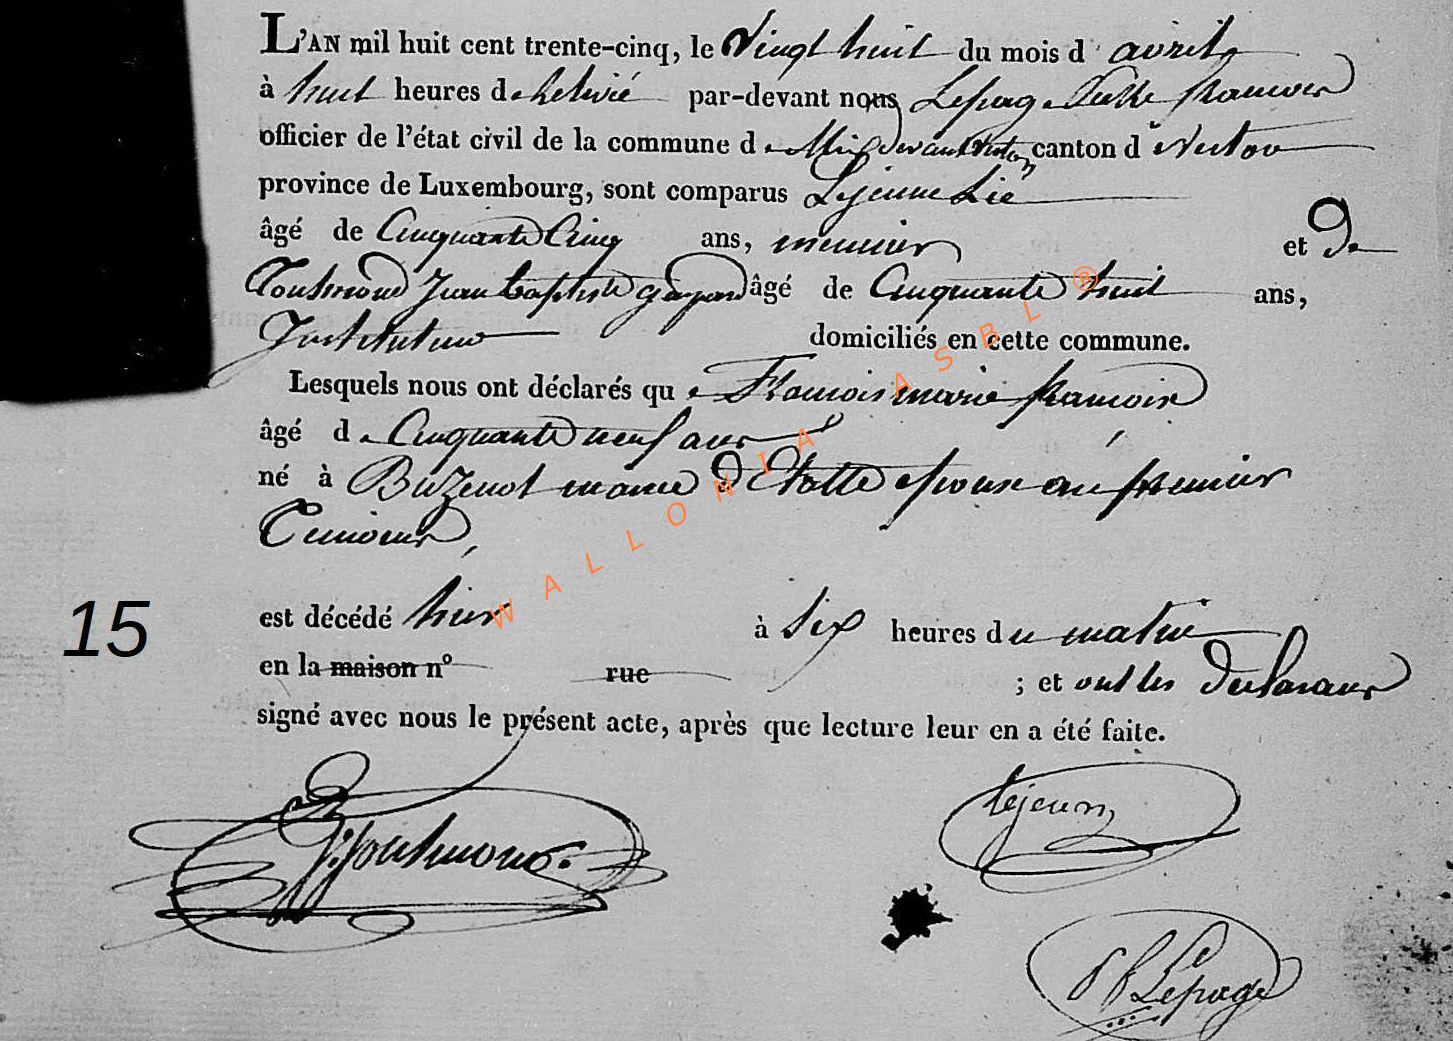 L'AN mil huit cent trente-cinq, le Vingt huit du mois d' avril
à huit heures de relevée par-devant nous Lepage françois
officier de l'état civil de la commune de devant Virton canton de Virton
province de Luxembourg, sont comparus Lejeune
âgé de Cinquante Cinq ans, meunier et De
Toulmond Jean baptiste âgé de Cinquante huit ans,
Instituteur domiciliés en cette commune.
Lesquels nous ont déclarés que marie françoise
âgé de Cinquante neuf ans
né à Buzenol mairie d'Etalle epouse au premier
est décédé hier à six heures du matin
en la maison n° rue ; et ont les declarans
signé avec nous le présent acte, après que lecture leur en a été faite.
15
Toulmond.
Lejeune
Lepage
WALLONIA ASBL ®